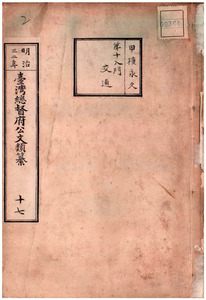 2
甲種永久
第十八門
交通
明治
三二年
臺灣總督府公文類纂
十七